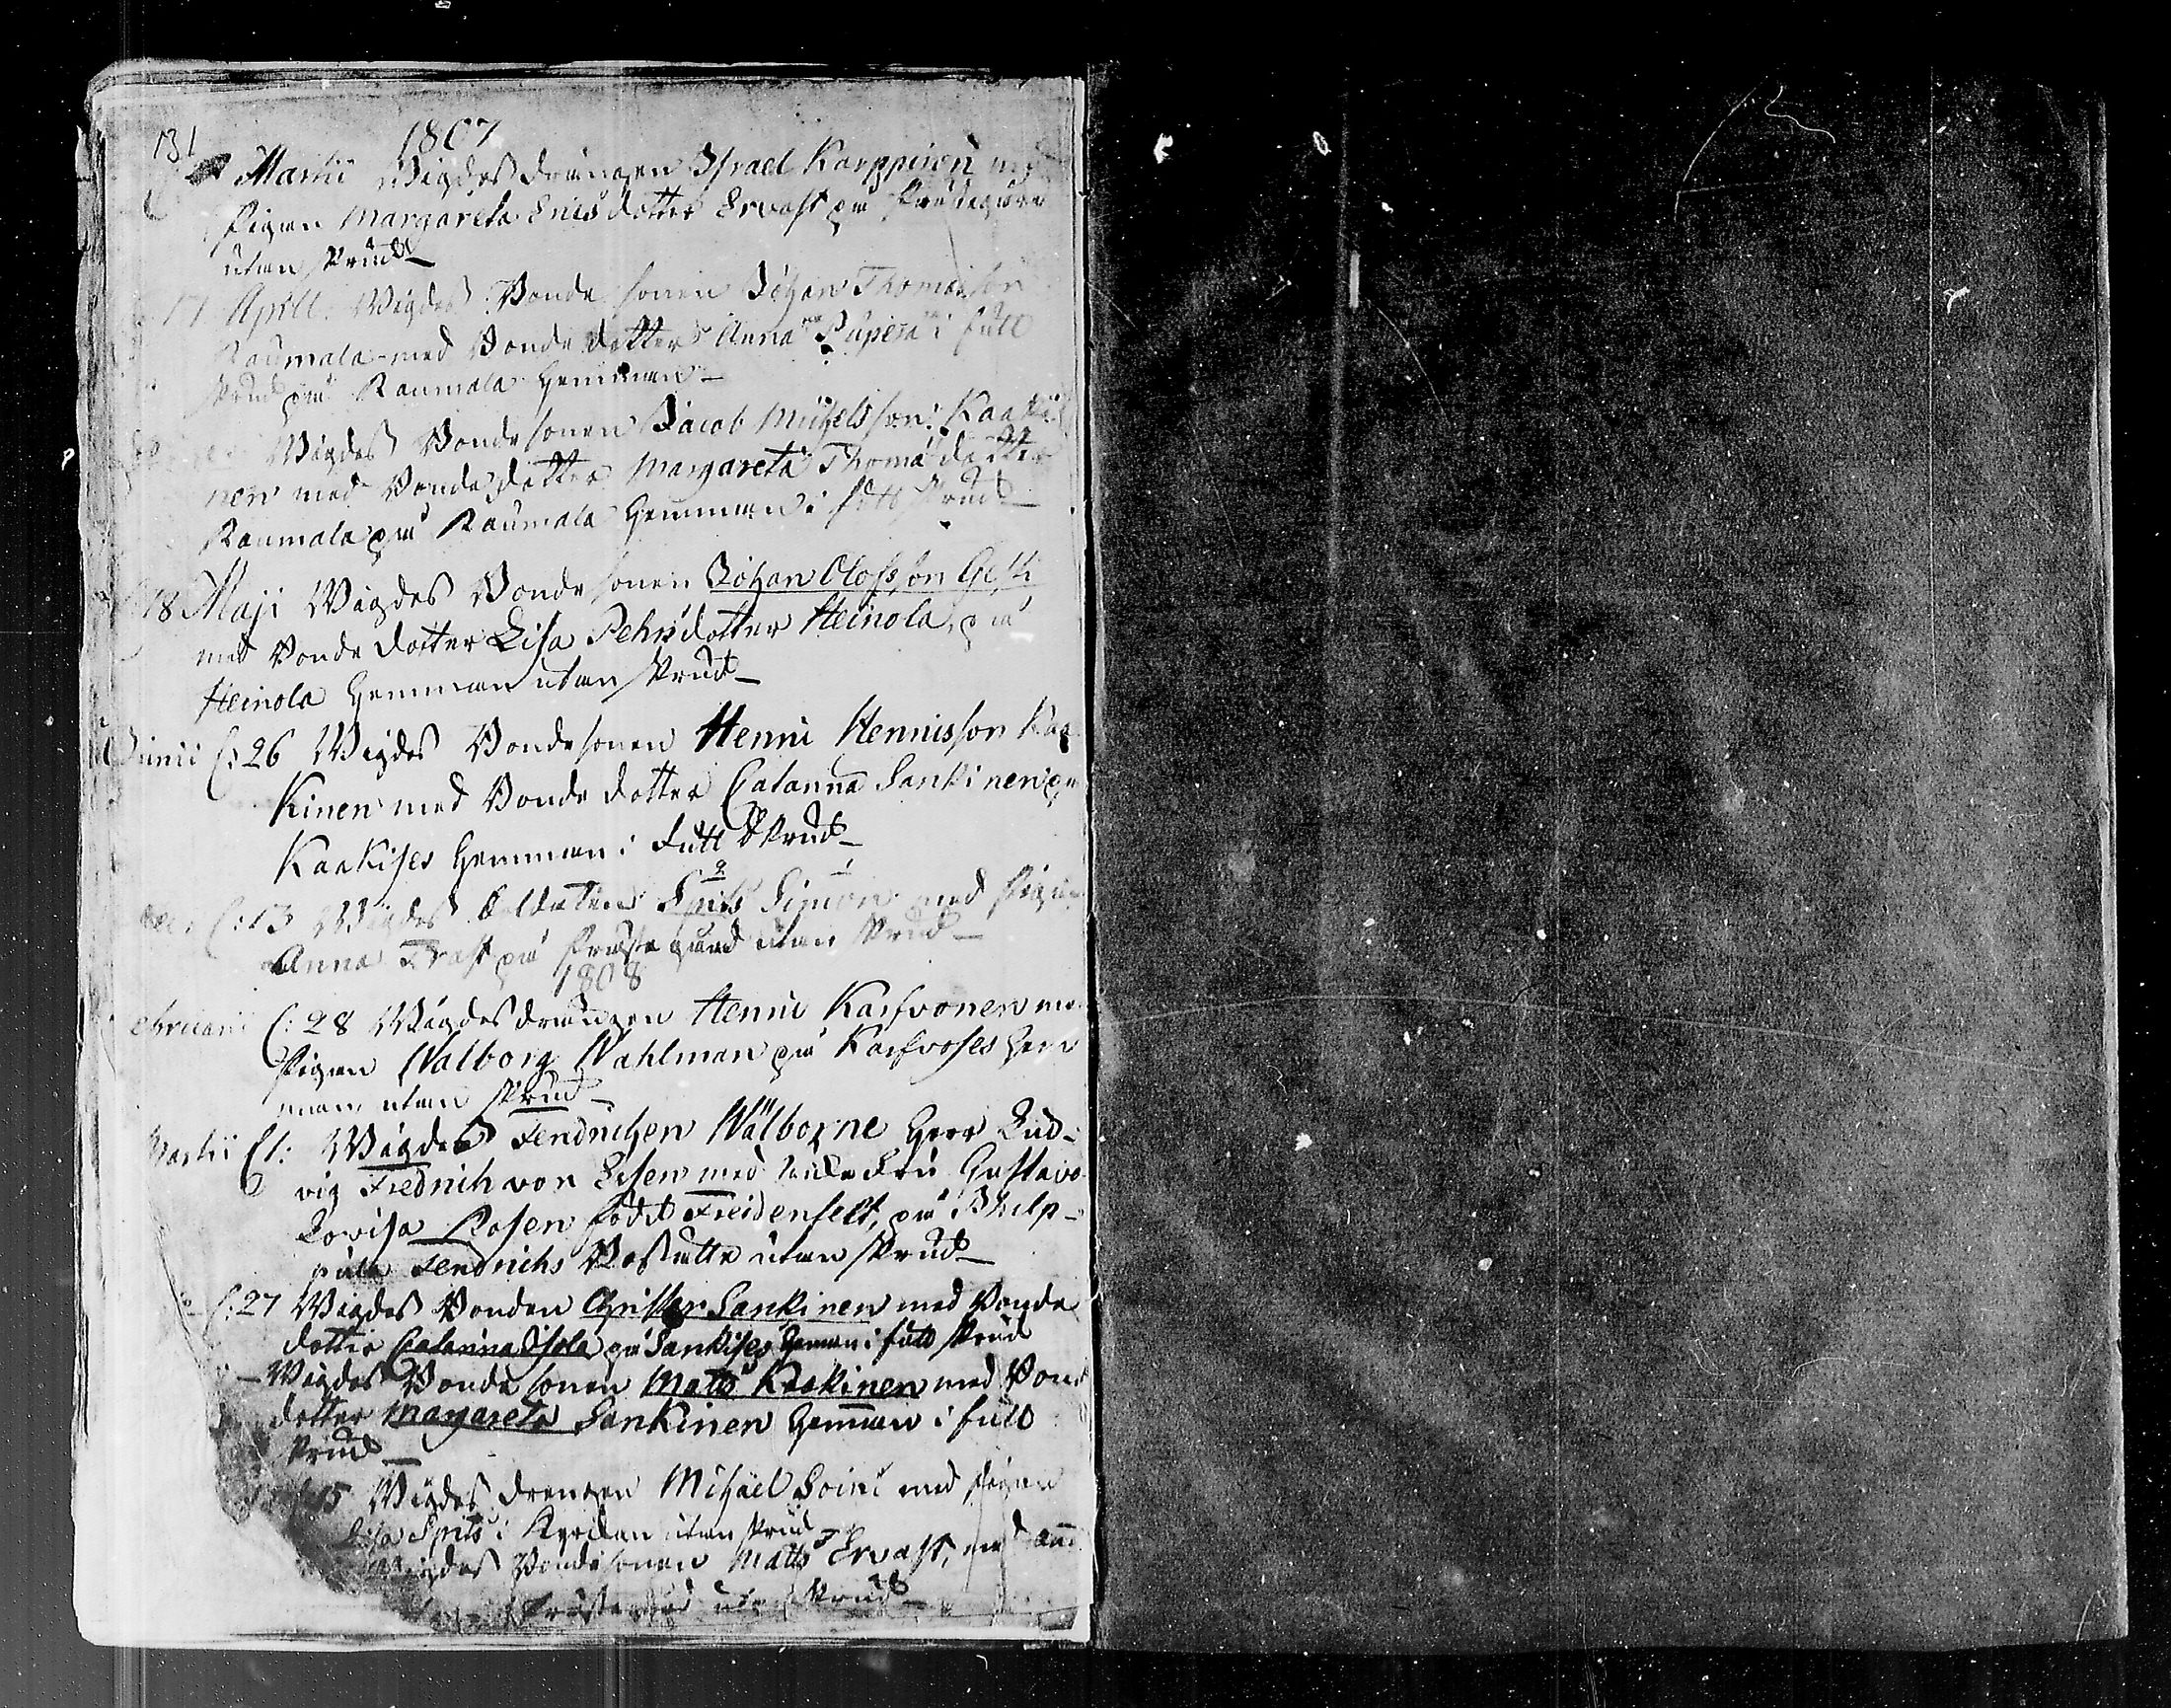 131
1807
Martii Wigdes drängen Israel Karppinen med
Pigan Margareta Ericsdotter Ervast på Prästegård
utan skrud
17 Aprill. Wigdes Bonde sonen Johan Thomasson
Raumala med Bonde dotter Anna i full
skrud på Raumala Hemman
Wigdes Bonde sonen Jacob Michelsson Kaaki
nen med Bonde dotter Margareta Thoma dotter
Raumala på Raumala Hemman i full skrud
18 Maji Wigdes Bonde sonen Johan Olofsson
med Bonde dotter Lisa Pehrsdotter Heinola, på
Heinola Hemman utan skrud
Junii d: 26 Wigdes Bondesonen Henric Henricsson Kaa
kinen med Bonde dotter Catarina Sankinen på
Kaakises Hemman i full skrud
d: 13 Wigdes Soldaten Spits Simon med Pigan
Anna Ervast på Prästegård utan skrud
1808
ebruarii d: 28 Wigdes drängen Henric Karfvonen med
Pigan Walborg Wahlman på Karfvoses Hem
man utan skrud
Martii d 1: Wigdes Fendrichen Wälborne Herr Lud-
vig Fredrich von Essen med Enke Fru Gustava
Lovisa Rosen född Freidenfelt, på
Fendrichs Boställe utan skrud
d: 27 Wigdes Bonden Christer Sankinen med Bonde
dotter Catarina Isola på Sankises Heman i full skrud
— Wigdes Bonde sonen Matts Kaakinen med Bonde
dotter Margareta Sankinen Hemman i full
skrud
15 Wigdes drengen Michael Soini med pigan
Lisa Spits i Kyrckan utan skrud
Wigdes Bondesonen Matts Ervast, med
Prästegård utan skrud